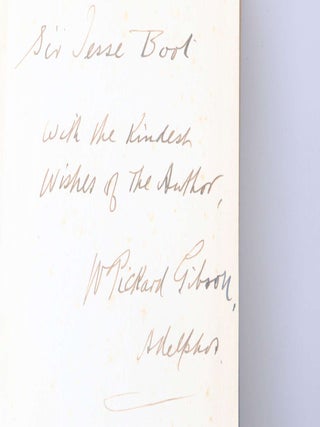 Sir Jesse Boot
With the Kindest
Wishes of The Author,
W Pickard Gibson,
Adelphos.